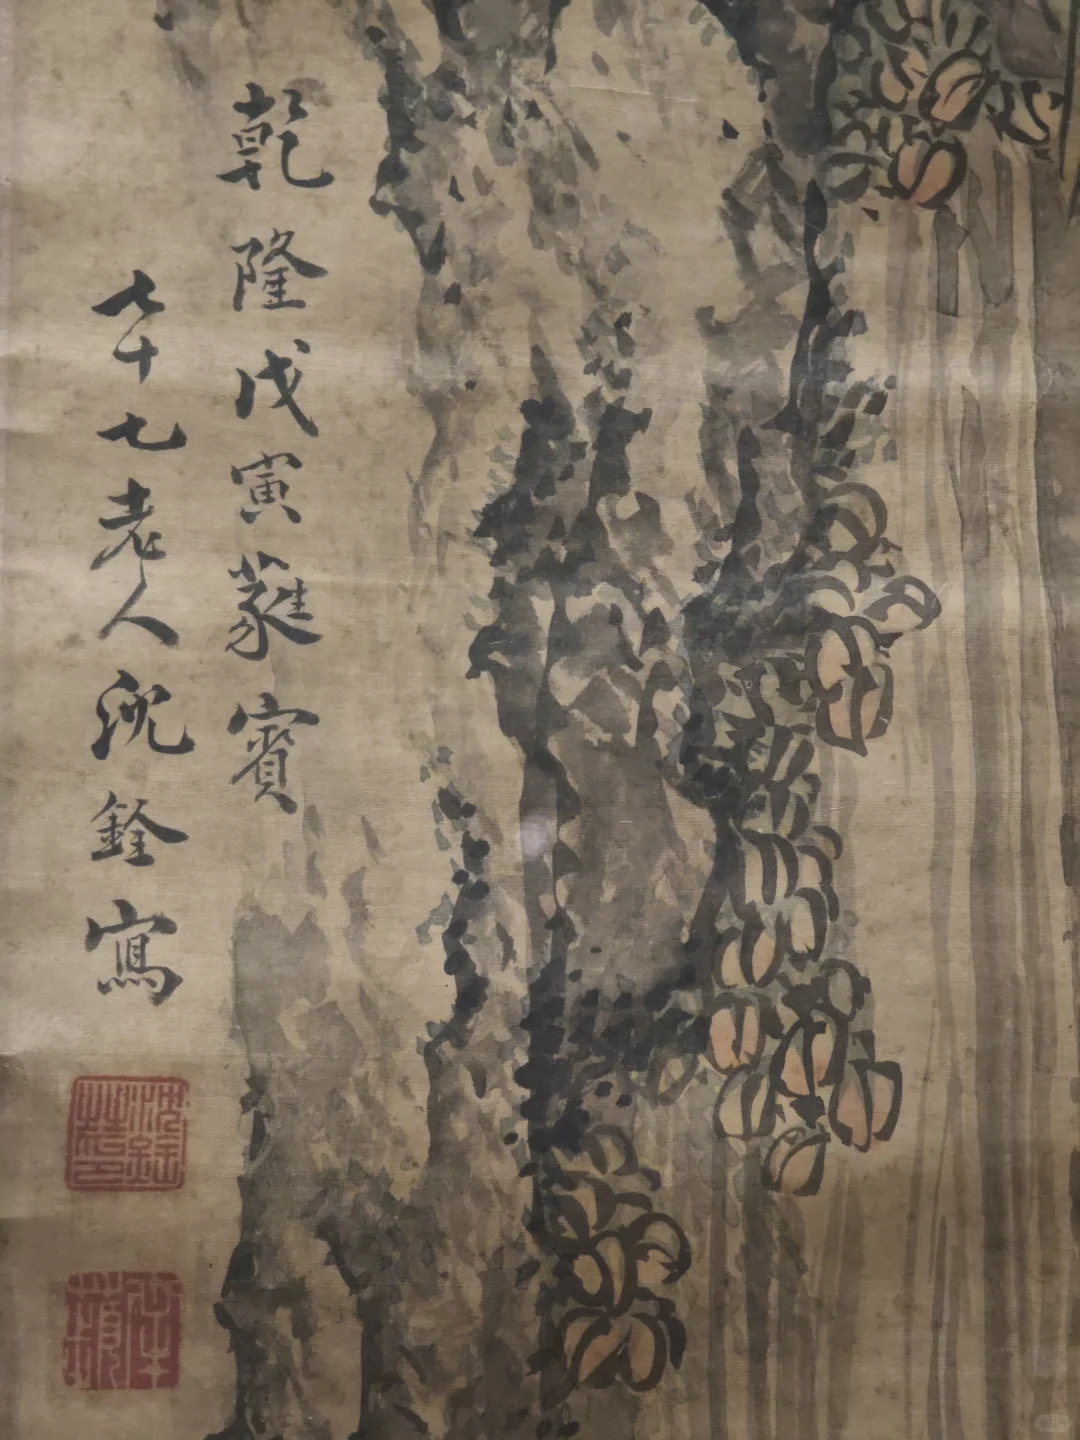 乾隆戊寅蕤賓
七十七老人沈銓寫
沈銓印
南蘋